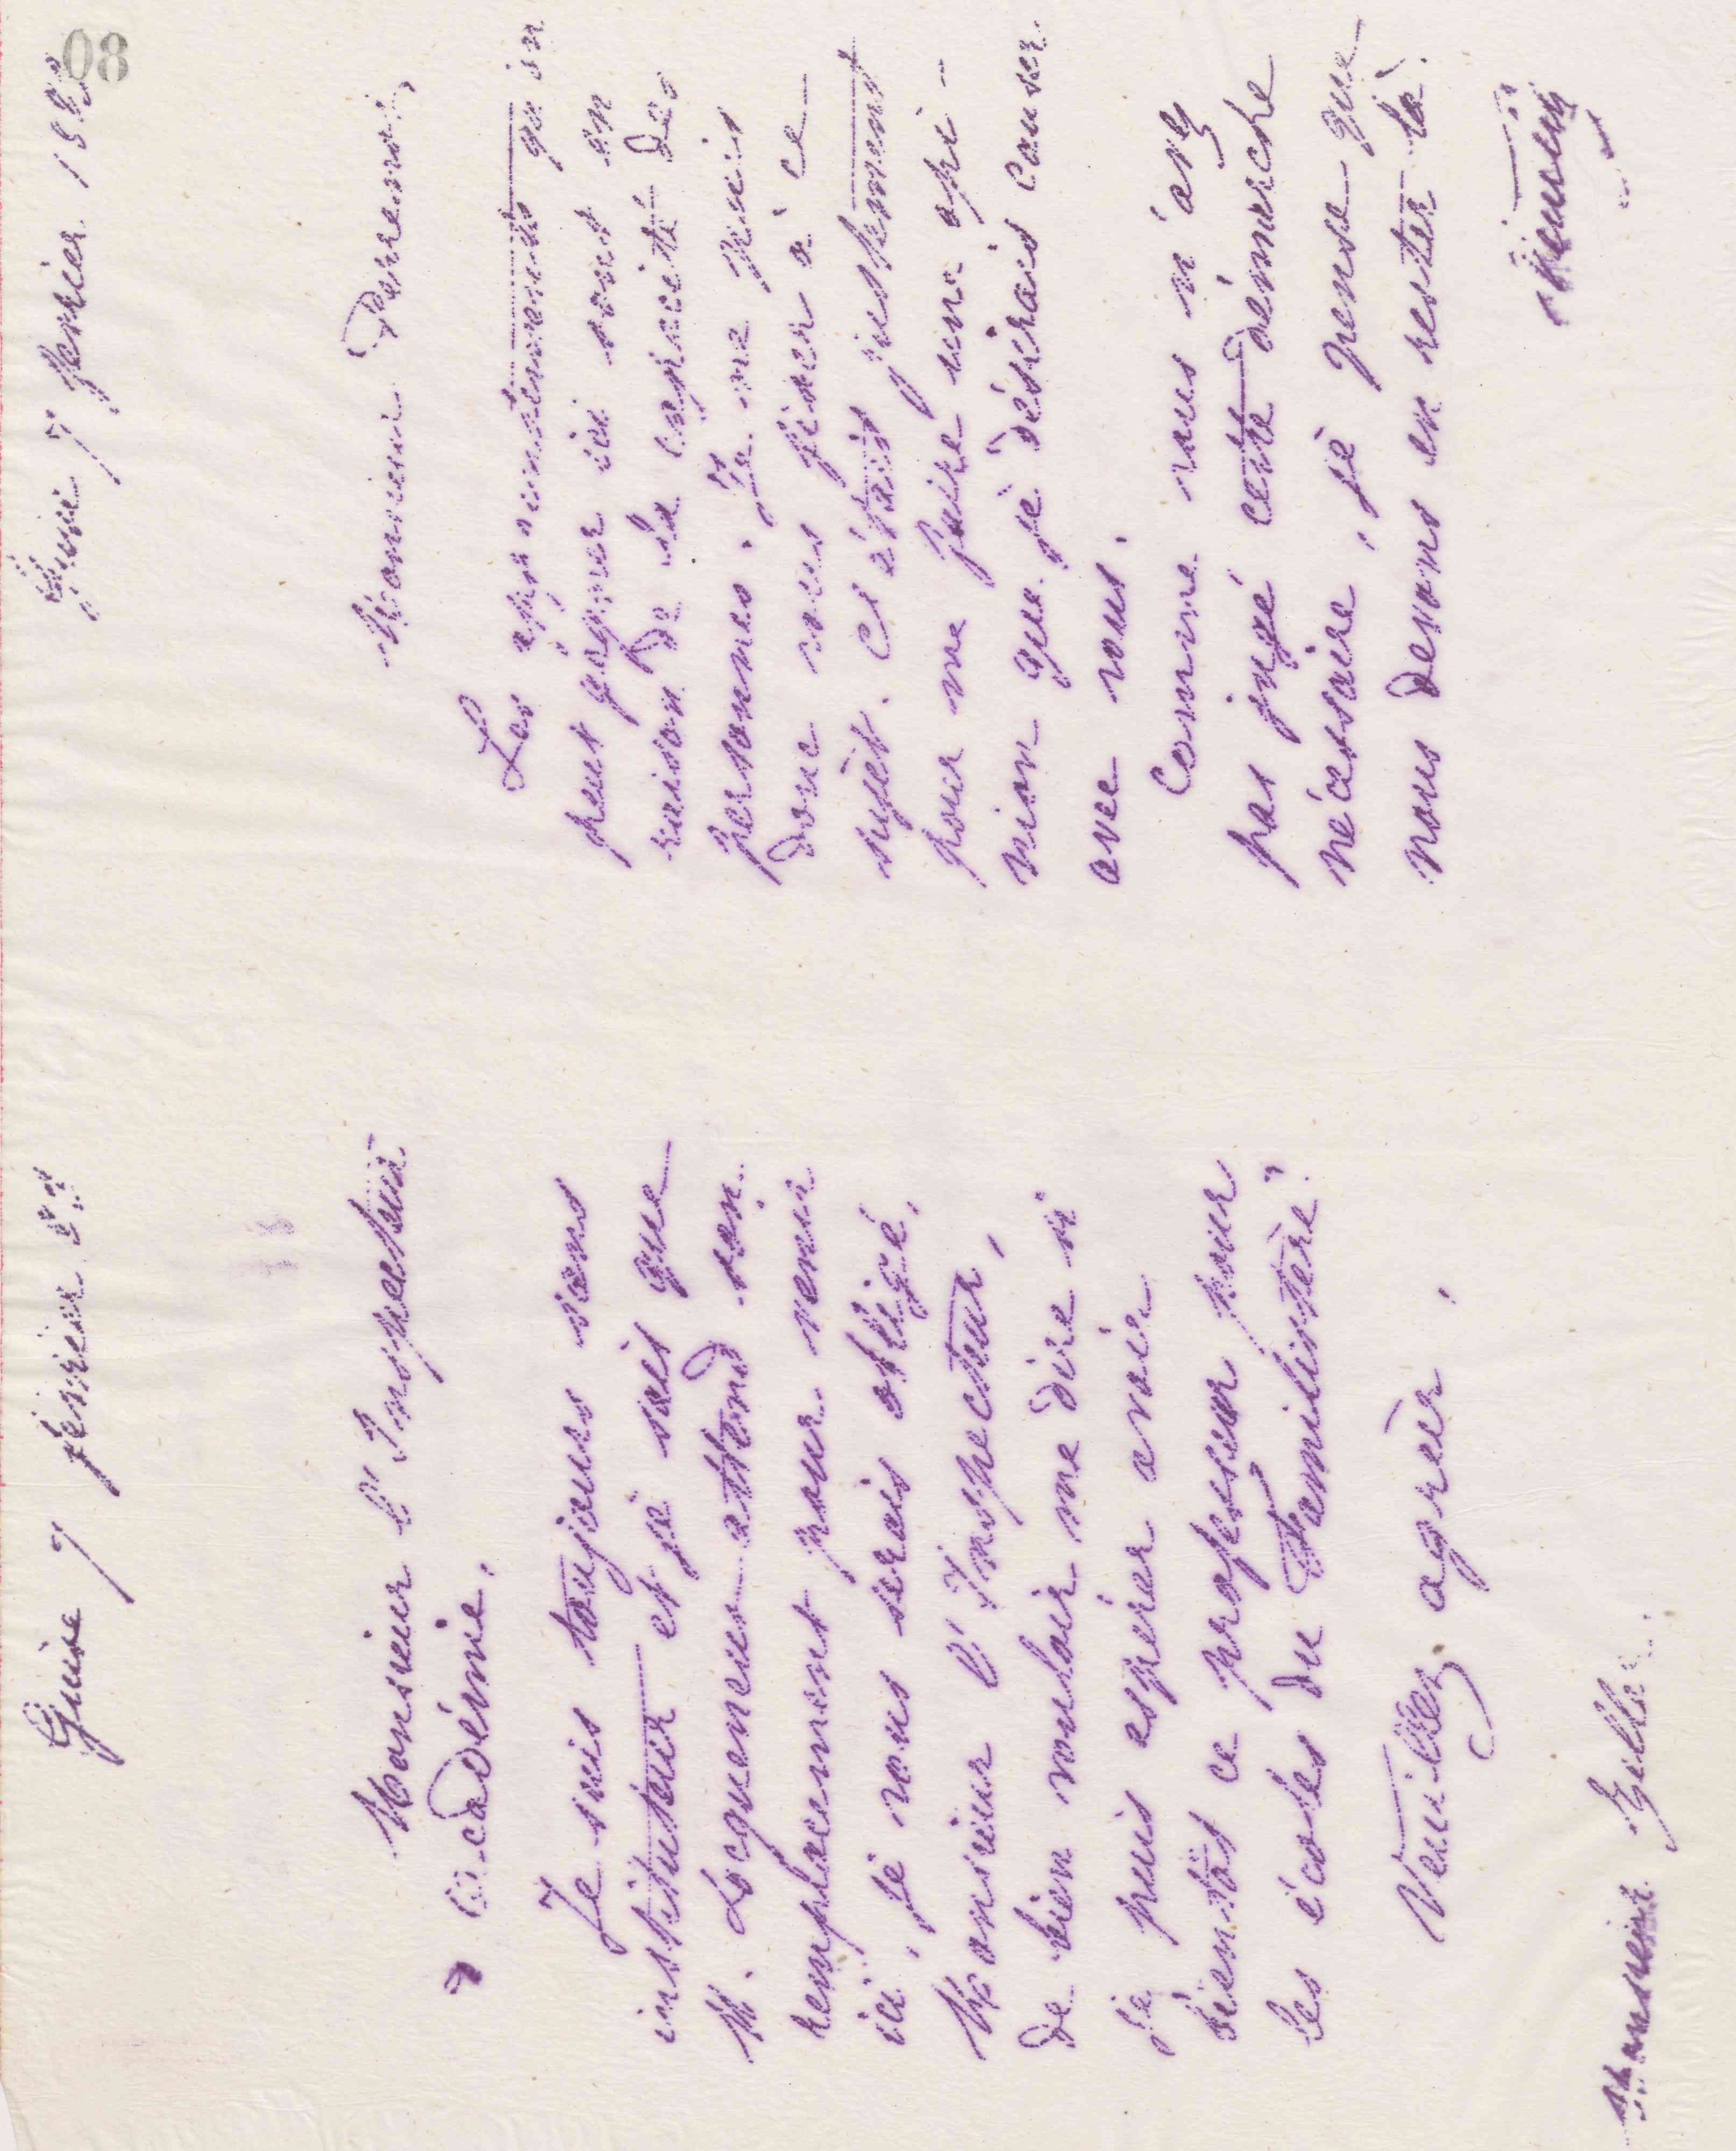 Guise 7 février 87
Monsieur l'Inspecteur
d'académie,
Je suis toujours sans
instituteur et je sais que
M. Loqueneux attend son
remplacement pour venir
ici. Je vous serais obligé,
Monsieur l'Inspecteur,
de bien vouloir me dire si
je puis espérer avoir
bientôt ce professeur pour
les écoles du Familistère.
Veuillez agréer,
Monsieur Gille
08
Guise 7 février
Monsieur
Les appointements qu'on
peut gagner ici sont en
raison de la capacité des
personnes. Je ne puis
donc vous fixer à ce
sujet. C'était justement
pour me faire une opi-
nion que je désirais causer
avec vous.
Comme vous n'avez
pas jugé cette démarche
nécessaire, je pense que
nous devons en rester là.